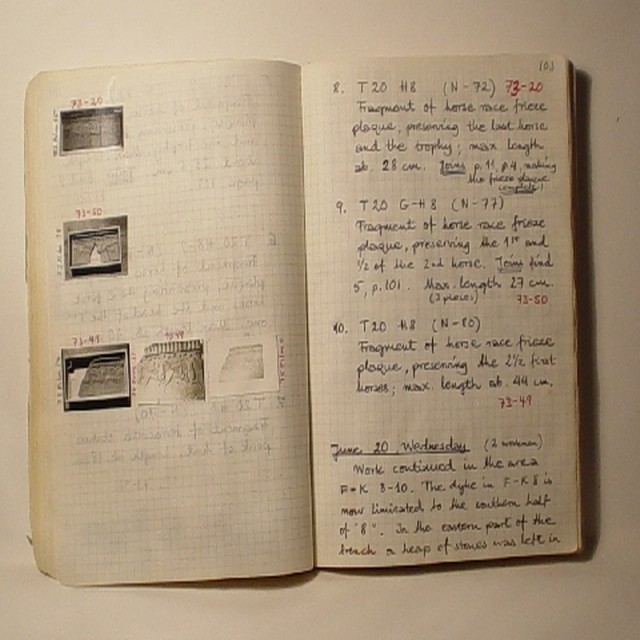 73-20
73-50
73-49
103
8. T20 H8 (N-72) 73-20
Fragment of horse race frieze
plaque, preserving the last horse
and the trophy; max. length
ab. 28 cm. Joins p.11, p.4, making
the frieze plaque
complete!
9. T20 G-H8 (N-77)
Fragment of horse race frieze
plaque, preserving the 1st and
1/2 of the 2nd horse. Joins find
5, p.101. Max. length 27 cm.
(3 pieces) 73-50
10. T20 H8 (N-80)
Fragment of horse race frieze
plaque, preserving the 2 1/2 first
horses; max. length ab. 44 cm.
73-49
June 20, Wednesday (2 workmen)
Work continued in the area
F-K 8-10. The dyke in F-K 8 is
now limitated to the southern half
of "8". In the eastern part of the
trench a heap of stones was left in